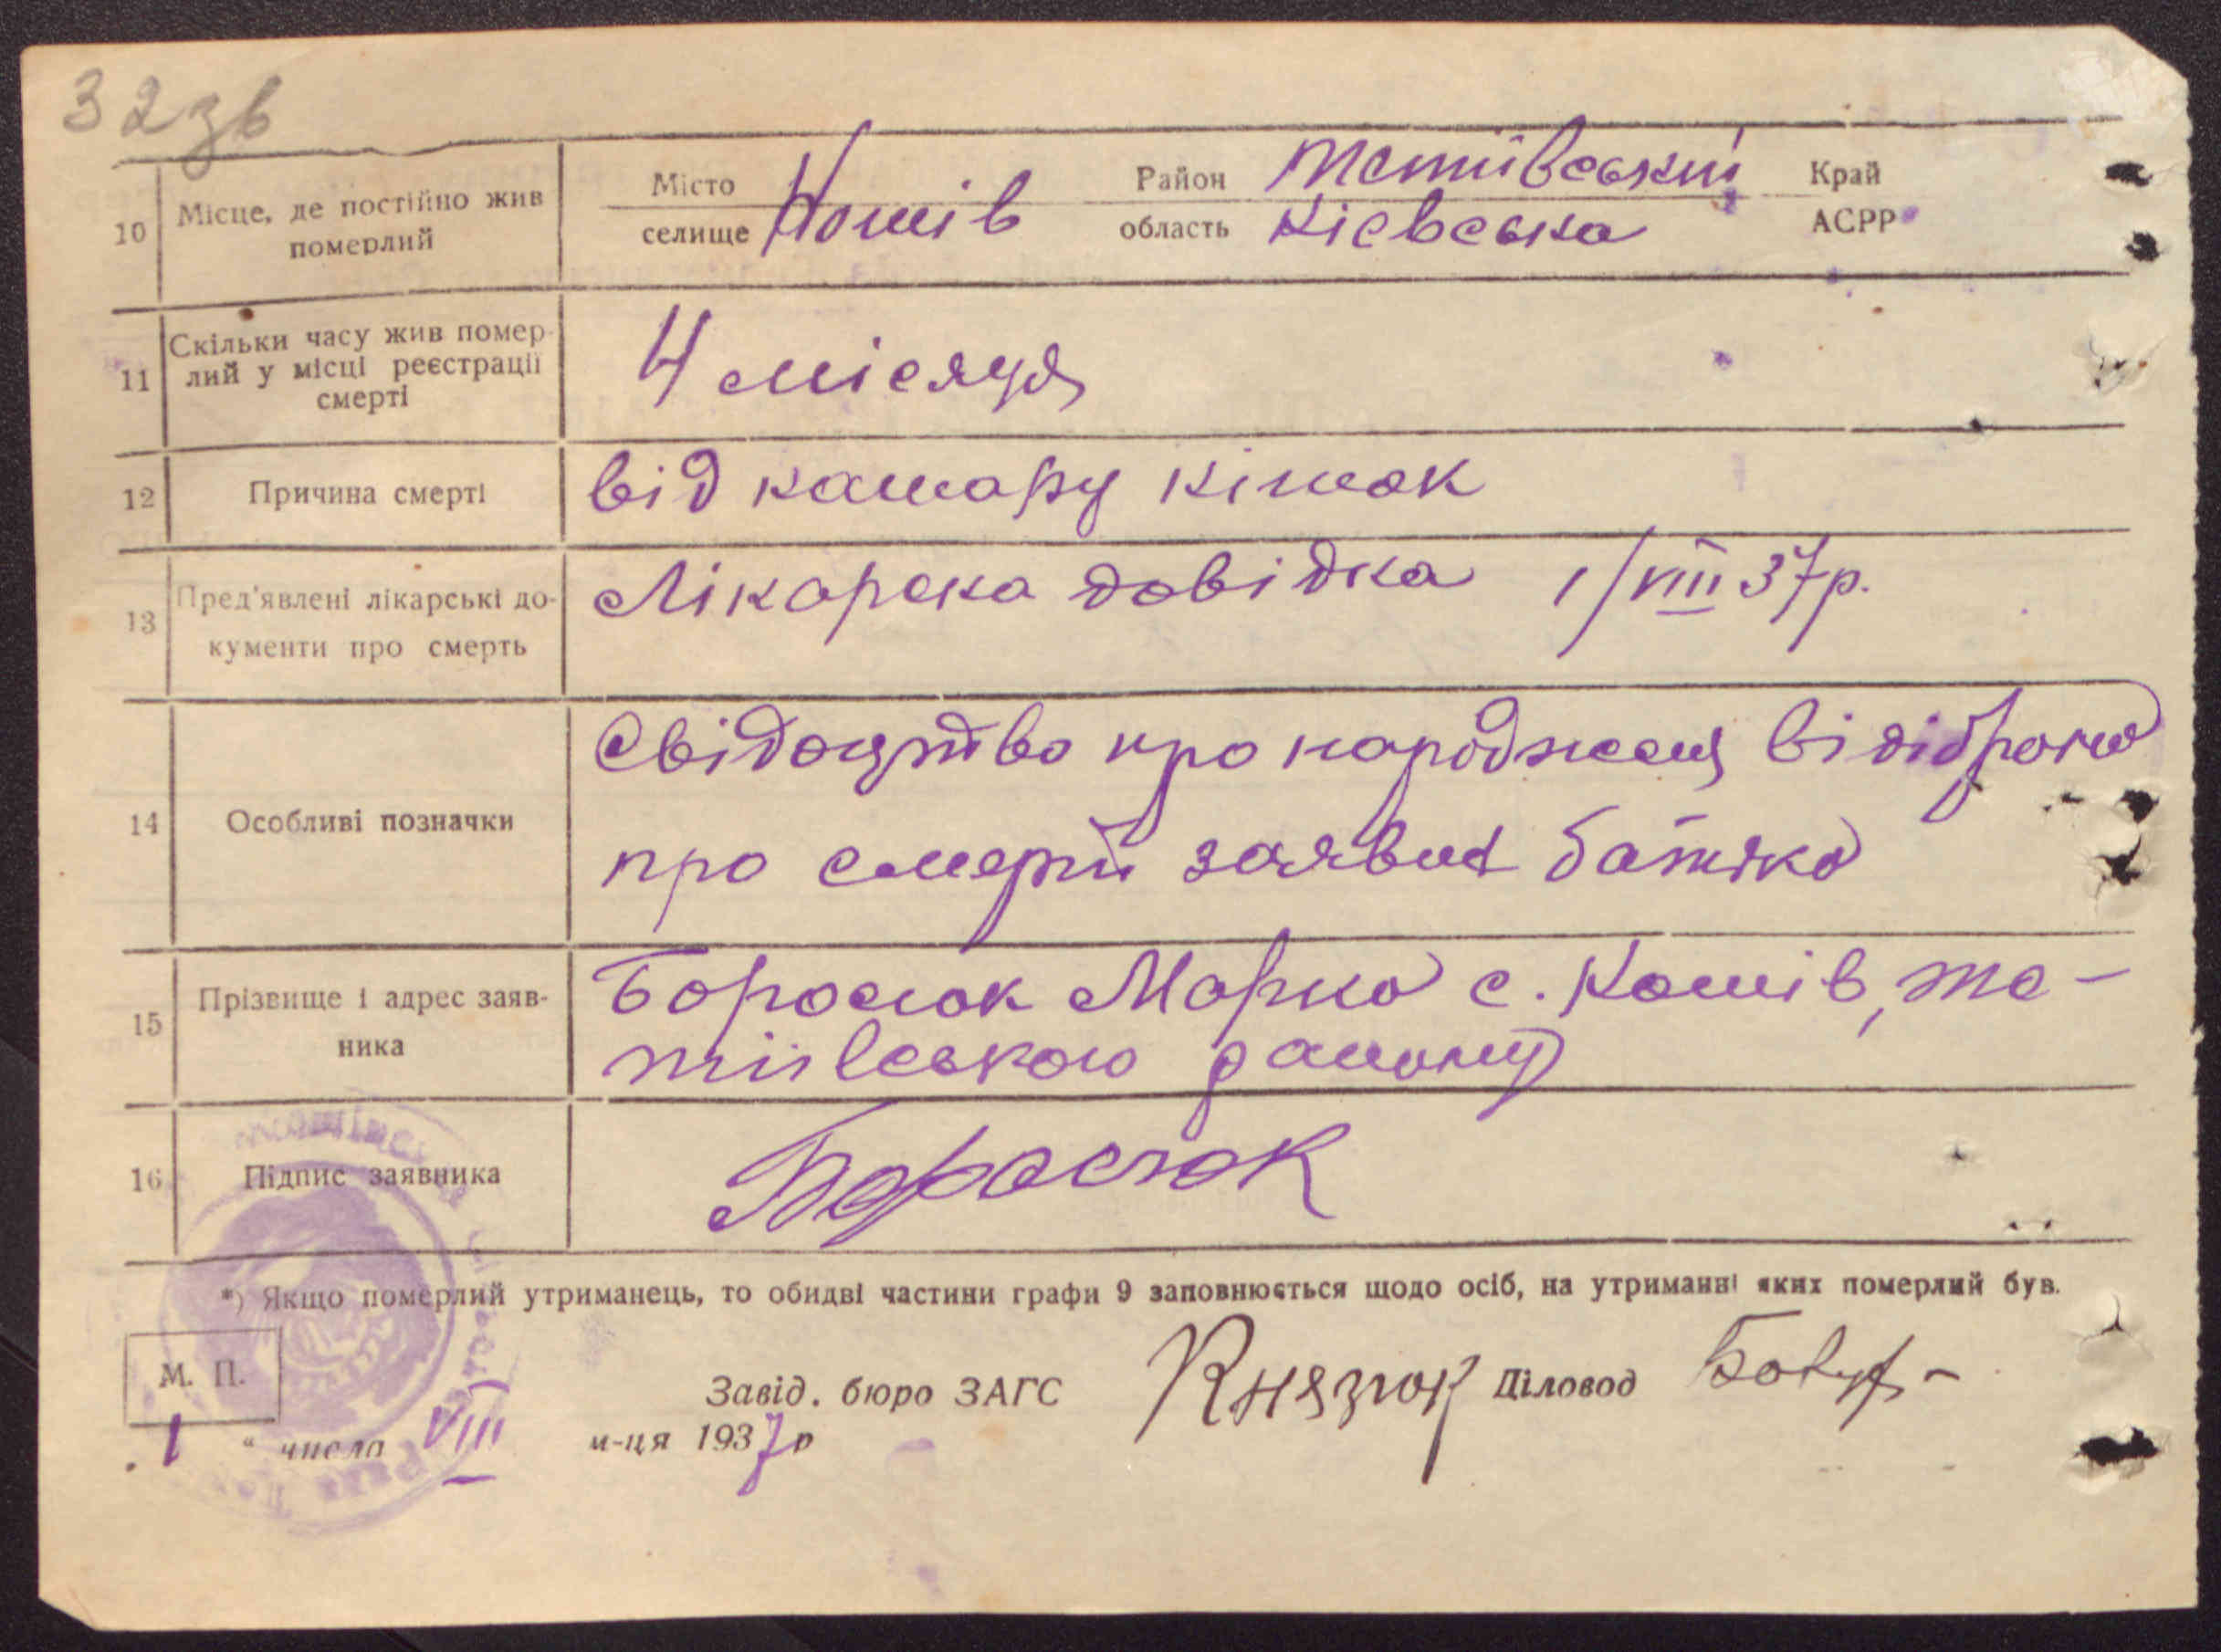 32зв
10 Місце, де постійно жив померлий Місто селище Кошів Район Тетиївський область Кієвська Край АСРР
11 Скільки часу жив помер-
лий у місці реєстрації
смерті
4 місяця
12 Причина смерті від катару кішок
13 Пред'явлені лікарські до-
кументи про смерть
Лікарска довідка 1/VIII 37р.
14 Особливі позначки
Свідоцтво про народжен відібрано
про смерть заявив батько
15 Прізвище і адрес заяв-
ника
Боросюк Марко с. Кошів, те-
тіївського району
16 Підпис заявника Боросюк
*) Якщо померлий утриманець, то обидві частини графи 9 заповнюється щодо осіб, на утриманні яких померлий був.
М. П.
Завід. бюро ЗАГС Князюк Діловод
1 " числа VIII м-ця 1937р